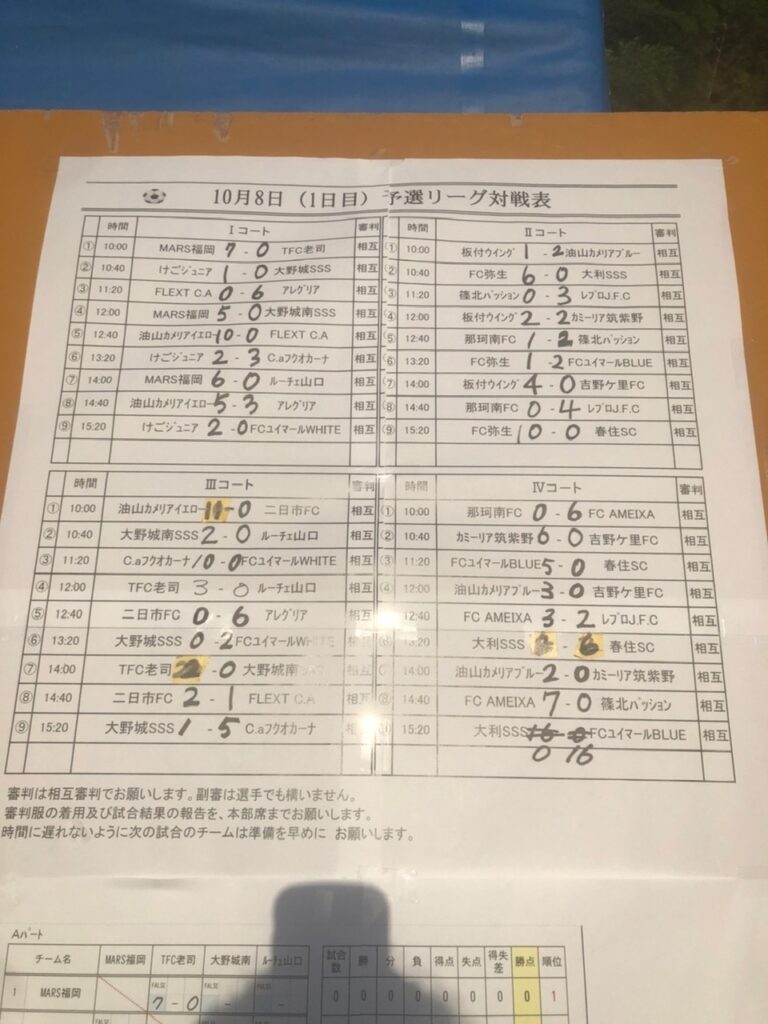 10月8日（1日目）予選リーグ対戦表
時間 Ⅰコート 審判
① 10:00 MARS福岡 7 - 0 TFC老司 相互
② 10:40 けごジュニア 1 - 0 大野城SSS 相互
③ 11:20 FLEXT C.A 0 - 6 アレグリア 相互
④ 12:00 MARS福岡 5 - 0 大野城南SSS 相互
⑤ 12:40 油山カメリアイエロー 10 - 0 FLEXT C.A 相互
⑥ 13:20 けごジュニア 2 - 3 C.aフクオカーナ 相互
⑦ 14:00 MARS福岡 6 - 0 ルーチェ山口 相互
⑧ 14:40 油山カメリアイエロー 5 - 3 アレグリア 相互
⑨ 15:20 けごジュニア 2 - 0 FCユイマールWHITE 相互
時間 Ⅱコート 審判
① 10:00 板付ウイング 1 - 2 油山カメリアブルー 相互
② 10:40 FC弥生 6 - 0 大利SSS 相互
③ 11:20 篠北パッション 0 - 3 レプロJ.F.C 相互
④ 12:00 板付ウイング 2 - 2 カミーリア筑紫野 相互
⑤ 12:40 那珂南FC 1 - 2 篠北パッション 相互
⑥ 13:20 FC弥生 1 - 2 FCユイマールBLUE 相互
⑦ 14:00 板付ウイング 4 - 0 吉野ケ里FC 相互
⑧ 14:40 那珂南FC 0 - 4 レプロJ.F.C 相互
⑨ 15:20 FC弥生 10 - 0 春住SC 相互
時間 Ⅲコート 審判
① 10:00 油山カメリアイエロー - 0 二日市FC 相互
② 10:40 大野城南SSS 2 - 0 ルーチェ山口 相互
③ 11:20 C.aフクオカーナ 10 - 0 FCユイマールWHITE 相互
④ 12:00 TFC老司 3 - 0 ルーチェ山口 相互
⑤ 12:40 二日市FC 0 - 6 アレグリア 相互
⑥ 13:20 大野城SSS 0 - 2 FCユイマールWHITE
⑦ 14:00 TFC老司 - 0 大野城南
⑧ 14:40 二日市FC 2 - 1 FLEXT C.A
⑨ 15:20 大野城SSS 1 - 5 C.aフクオカーナ
時間 Ⅳコート 審判
① 10:00 那珂南FC 0 - 6 FC AMEIXA 相互
② 10:40 カミーリア筑紫野 6 - 0 吉野ケ里FC 相互
③ 11:20 FCユイマールBLUE 5 - 0 春住SC 相互
④ 12:00 油山カメリアブルー 3 - 0 吉野ケ里FC 相互
12:40 FC AMEIXA 3 - 2 レプロJ.F.C 相互
13:20 大利SSS - 6 春住SC 相互
14:00 油山カメリアブルー 2 - 0 カミーリア筑紫野 相互
14:40 FC AMEIXA 7 - 0 篠北パッション 相互
15:20 大利SSS 16 - 0 FCユイマールBLUE 相互
0 16
審判は相互審判でお願いします。副審は選手でも構いません。
審判服の着用及び試合結果の報告を、本部席までお願いします。
時間に遅れないように次の試合のチームは準備を早めに お願いします。
Aパート
チーム名 MARS福岡 TFC老司 大野城南 ルーチェ山口 試合数 勝 分 負 得点 失点 得失差 勝点 順位
1 MARS福岡 FALSE 7 - 0 FALSE - FALSE - 0 0 0 0 0 0 0 0 1